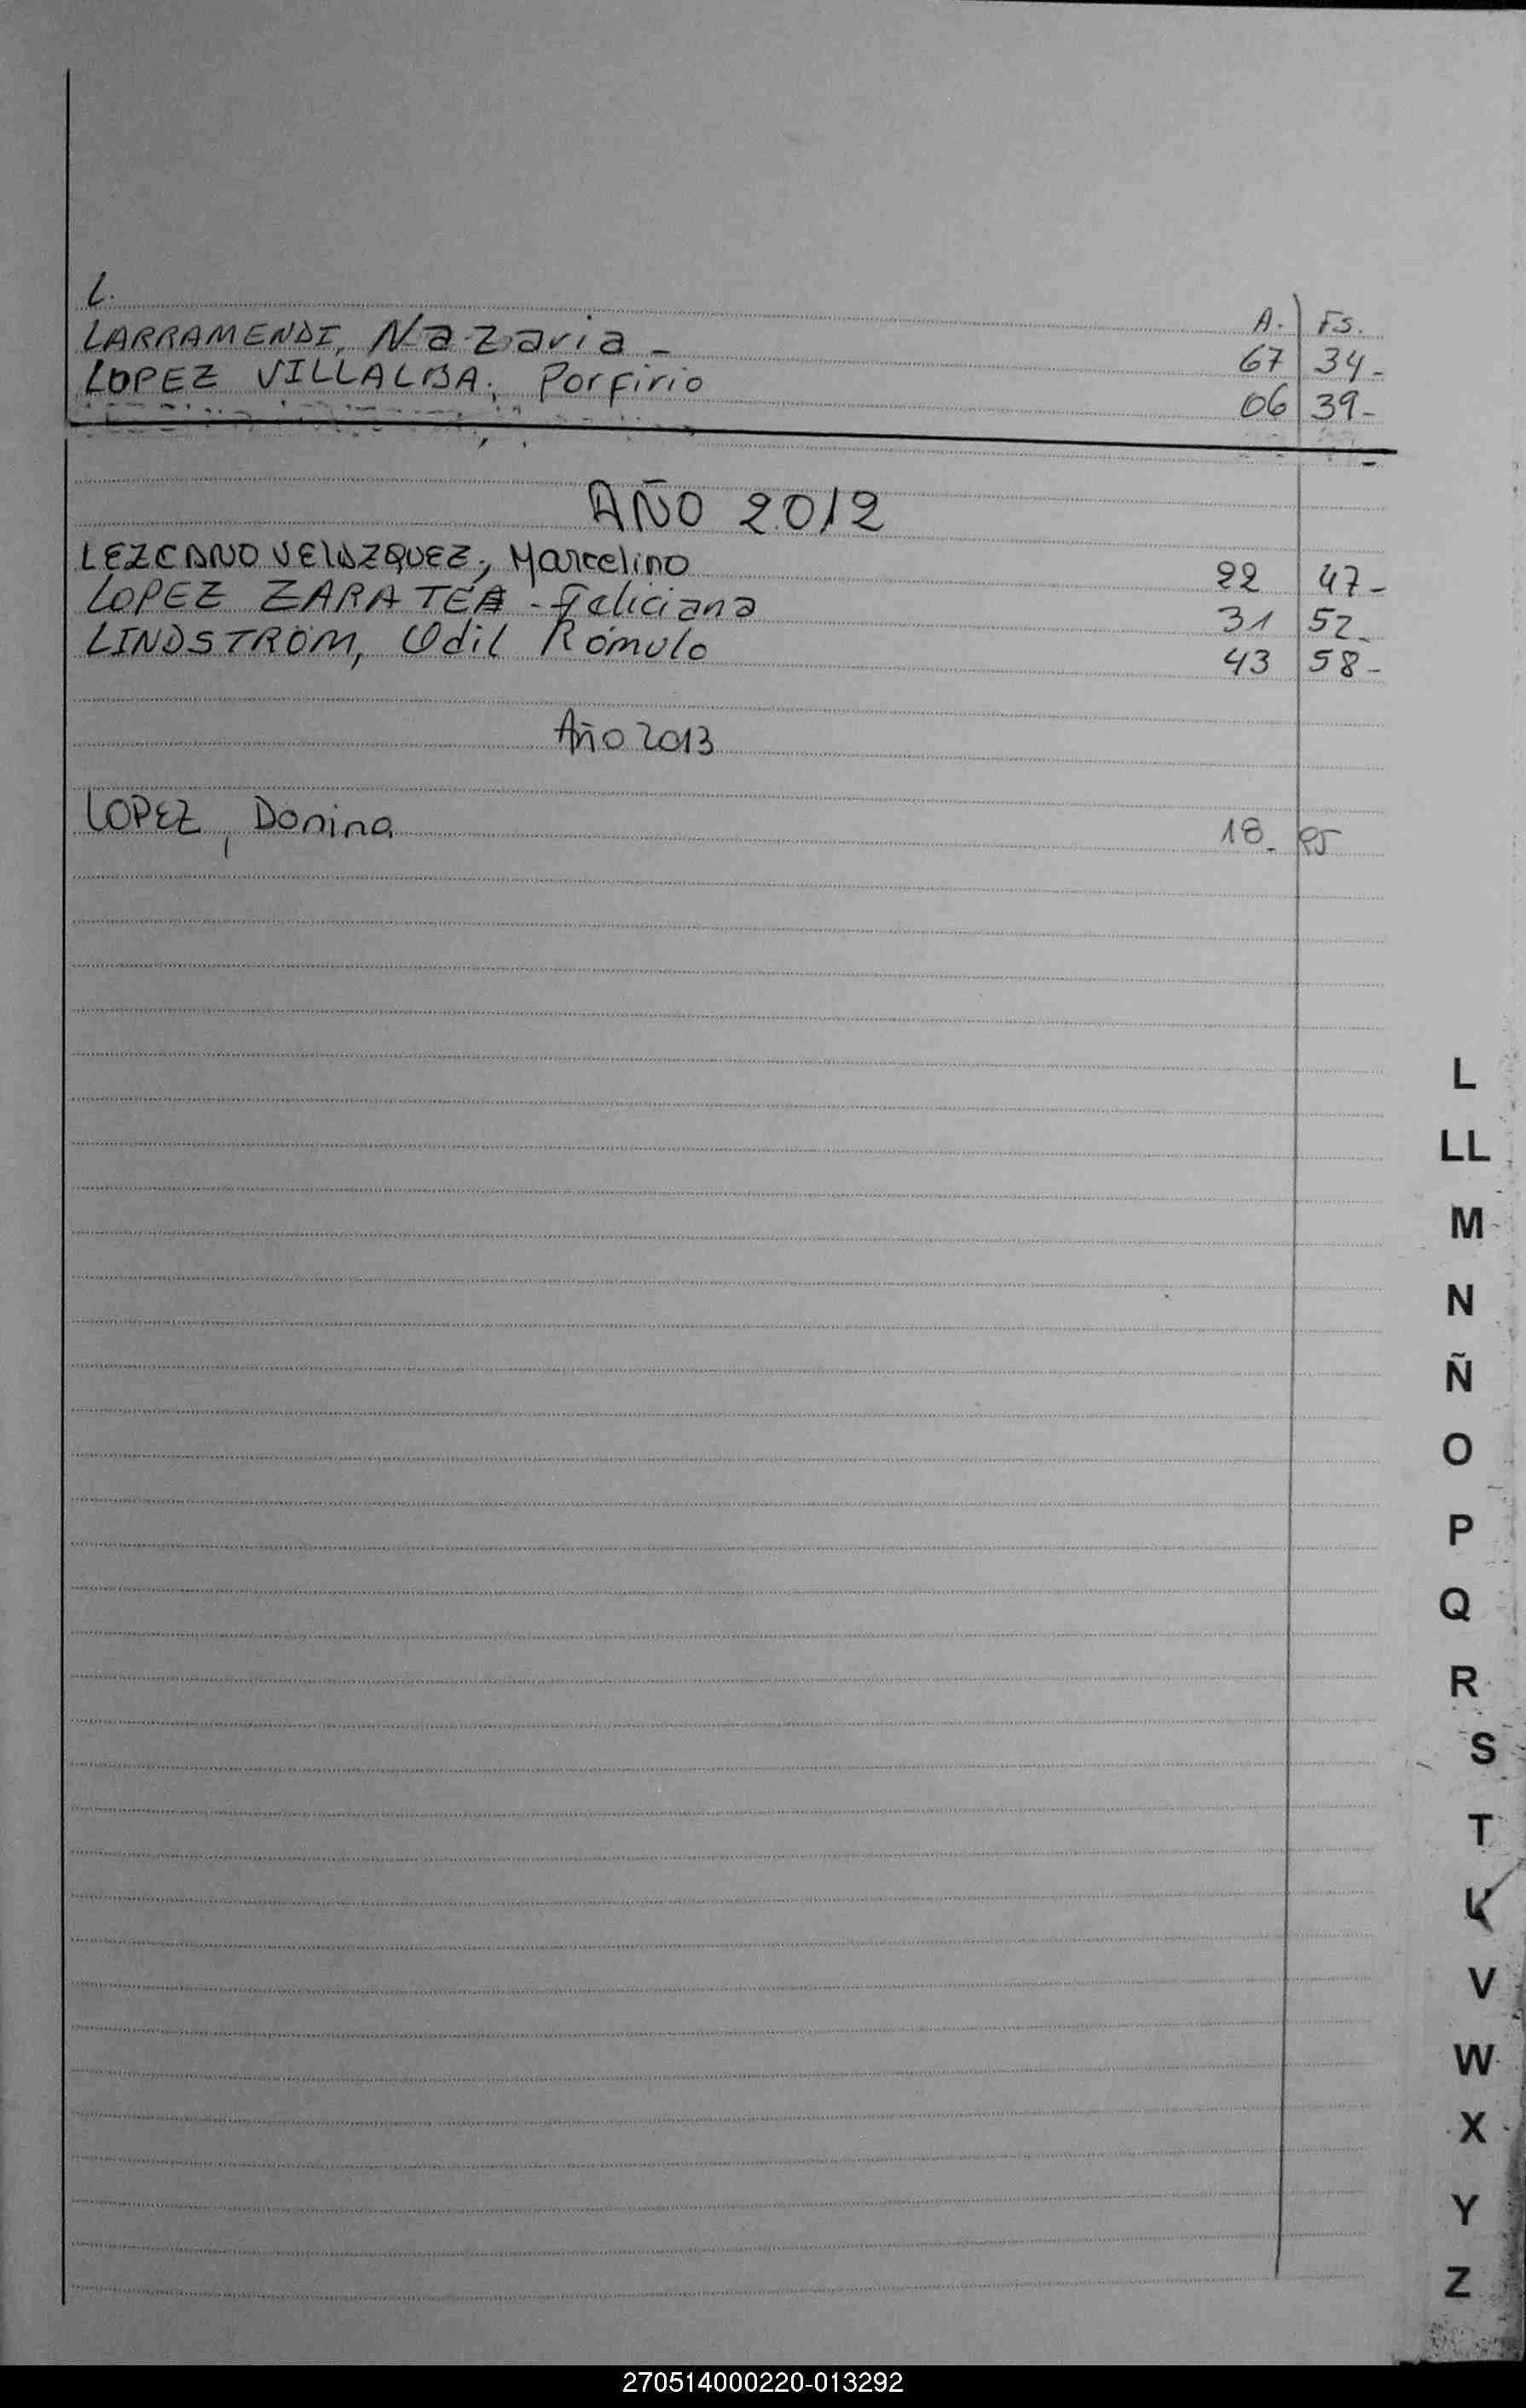 L.
A. Fs.
LARRAMENDI, Nazaria - 67 34-
LOPEZ VILLALBA, Porfirio 06 39-
AÑO 2012
LEZCANO VELAZQUEZ, Marcelino 22 47-
LOPEZ ZARATEA - Feliciana 31 52-
LINDSTRÖM, Odil Rómulo 43 58-
Año 2013
LOPEZ, Donina 18-
L
LL
M
N
Ñ
O
P
Q
R
S
T
U
V
W
X
Y
Z
270514000220-013292